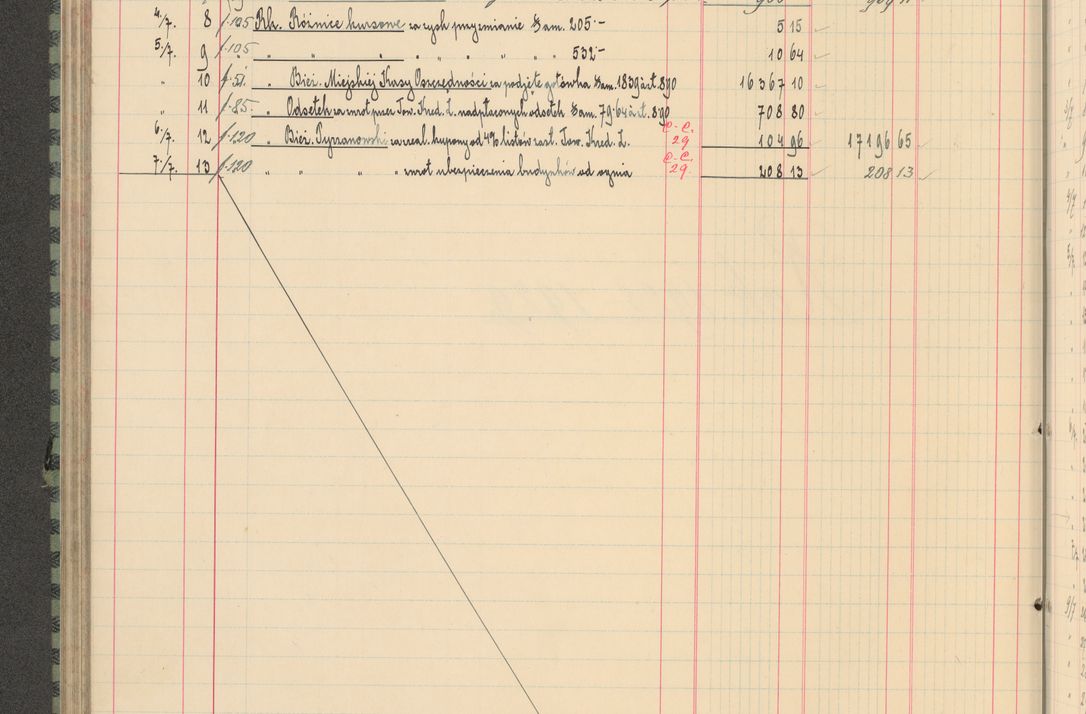 4/7. 8 f.105 Rk. Różnice kursowe za zysk przy zmianie $ am. 205.- 5 15
5./7. 9 f.105 " " " " " " " " 532.- 10 64
" 10 f.51. " Bież. Miejskiej Kasy Oszczędności za podjętą gotówkę $ am. 1839 à zł. 8.90 16367 10
" 11 f.85. " Odsetek za zwrot przez Tow. Kred. Z. nadpłaconych odsetek $ am. 79.64 à zł. 8.90 708 80
6./7. 12 f.120 " Bież. za real. kupony od 4% listów zast. Tow. Kred. Z. C.-C. 29 104 96 17196 65
7./7. 13 f.120 " " " " zwrot ubezpieczenia budynków od ognia C.-C. 29. 208 13 208 13